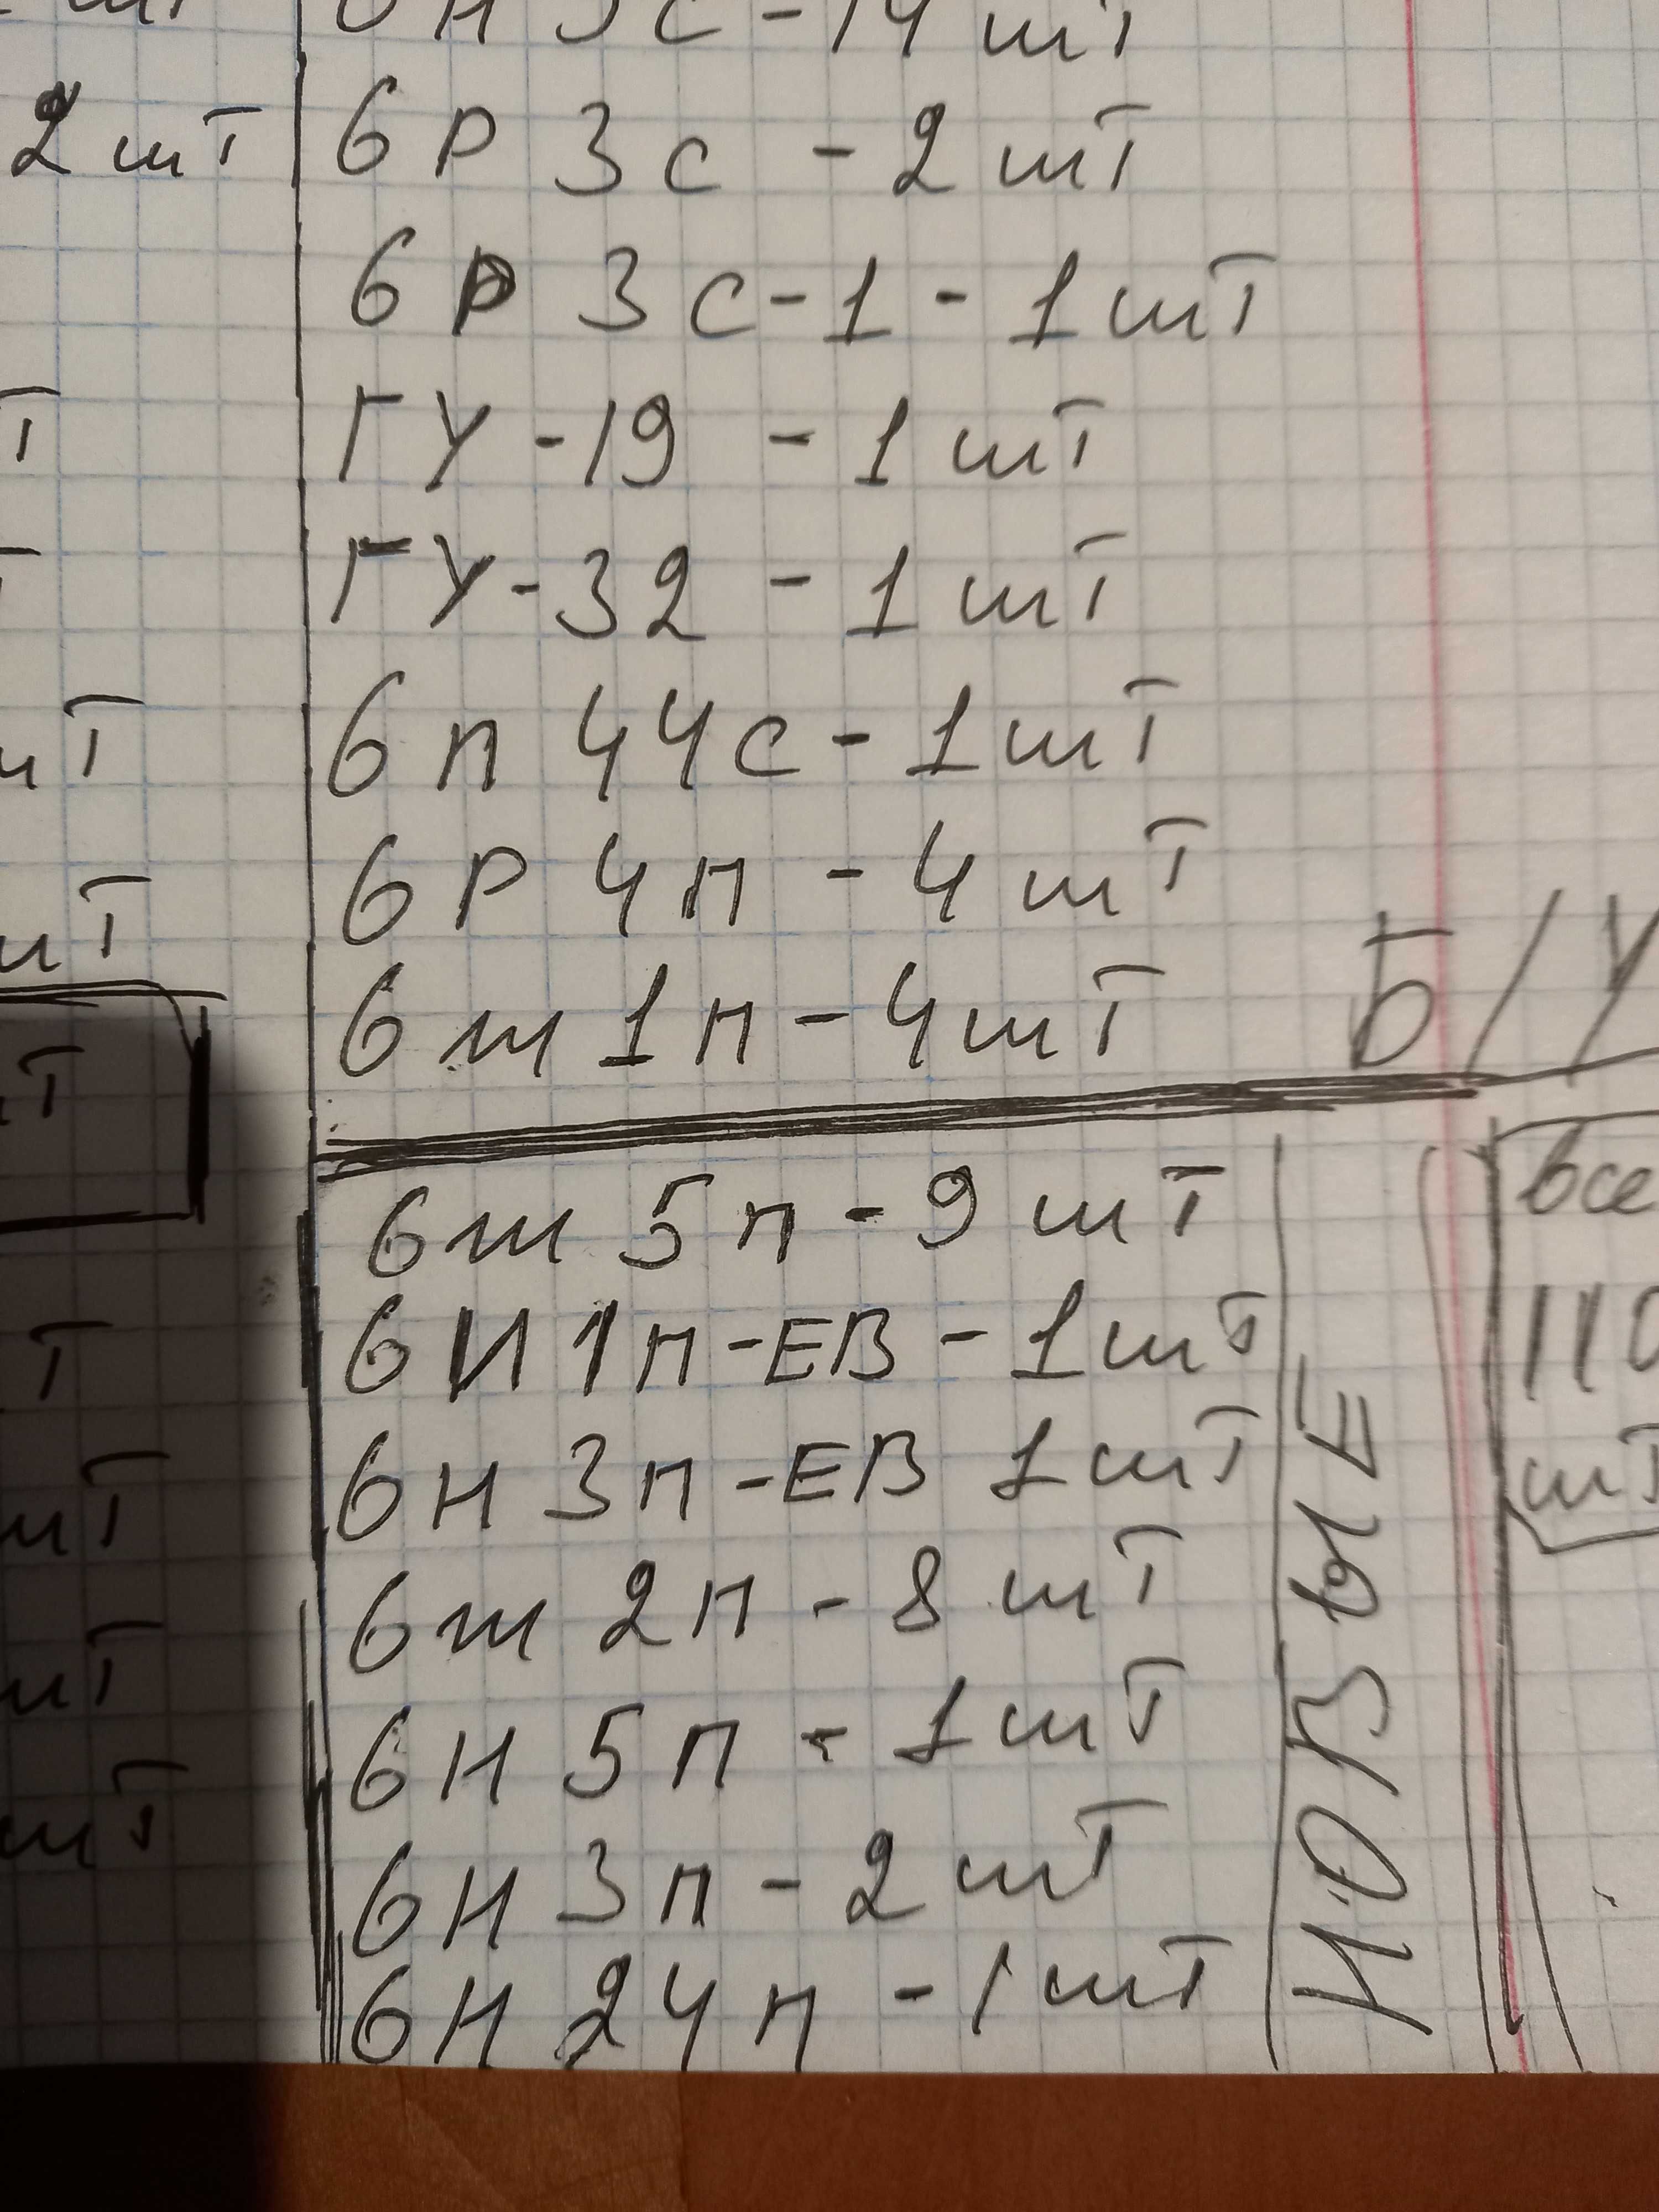 2 шт
6Н3С-14 шт
6Р3С - 2 шт
6Р3С-1 - 1 шт
ГУ-19 - 1 шт
ГУ-32 - 1 шт
6П44С - 1 шт
6Р4П - 4 шт
6ш1П - 4 шт
Б/У
6ш5П - 9 шт
6И1П-ЕВ - 1 шт
6Н3П-ЕВ 1 шт
6ш2П - 8 шт
6Н5П - 1 шт
6Н3П - 2 шт
6Н24П - 1 шт
НОВЫЕ
все
110
шт